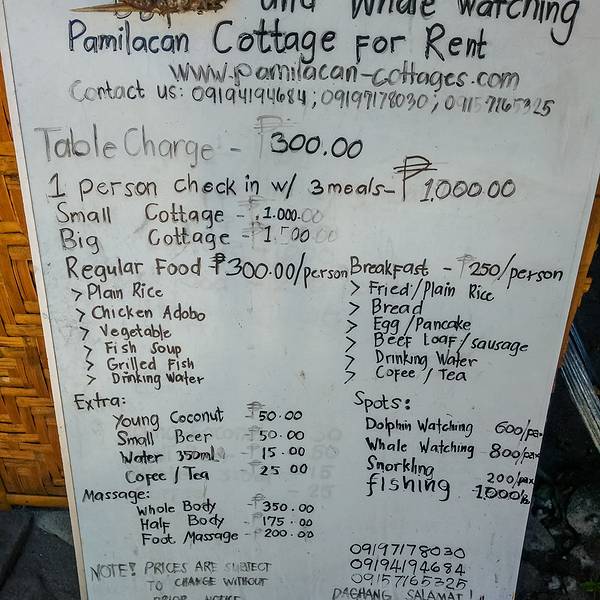 and Whale Watching
Pamilacan Cottage for Rent
www.pamilacan-cottages.com
Contact us: 09194194684; 09197178030; 09157165325
Table Charge - ₱300.00
1 person check in w/ 3meals - ₱1,000.00
Small Cottage - ₱1.000.00
Big Cottage - ₱1.500.00
Regular Food ₱300.00/person
> Plain Rice
> Chicken Adobo
> Vegetable
> Fish Soup
> Grilled Fish
> Drinking Water
Breakfast - ₱250/person
> Fried/Plain Rice
> Bread
> Egg/Pancake
> Beef Loaf/sausage
> Drinking Water
> Cofee / Tea
Extra:
Young Coconut - ₱50.00
Small Beer - ₱50.00
Water 350ml - ₱15.00
Cofee / Tea - ₱25 00
Massage:
Whole Body - ₱350.00
Half Body - ₱175.00
Foot Massage - ₱200.00
Spots:
Dolphin Watching 600/pax
Whale Watching - 800/pax
Snorkling 200/pax
fishing 1,000/
NOTE! PRICES ARE SUBJECT
TO CHANGE WITHOUT
PRIOR NOTICE
09197178030
09194194684
09157165325
DAGHANG SALAMAT!